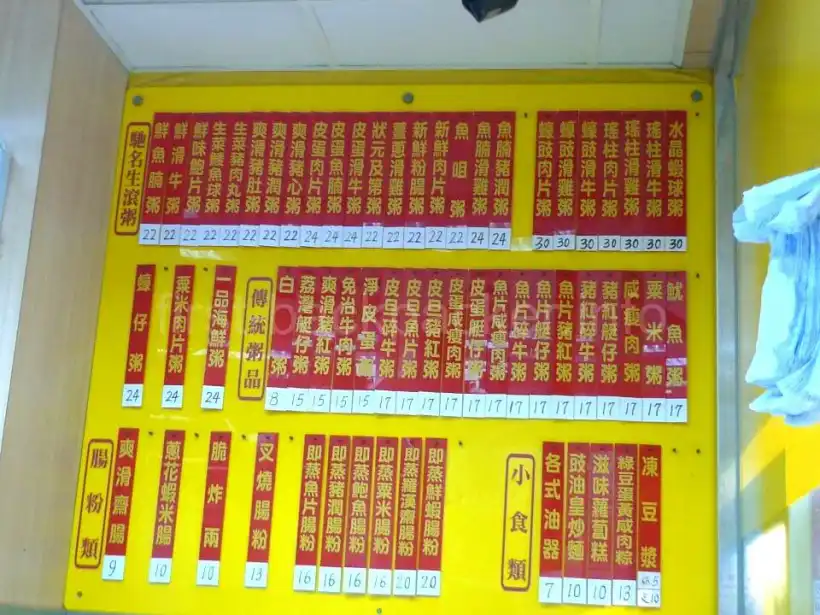 馳名生滾粥
鮮魚腩粥 22
鮮滑牛粥 22
鮮味鮑片粥 22
生菜鯪魚球粥 22
生菜豬肉丸粥 22
爽滑豬肚粥 22
爽滑豬潤粥 22
爽滑豬心粥 22
皮蛋肉片粥 24
皮蛋魚腩粥 24
皮蛋滑牛粥 24
狀元及第粥 22
薑蔥滑雞粥 22
新鮮粉腸粥 22
新鮮肉片粥 22
魚咀粥 22
魚腩滑雞粥 24
魚腩豬潤粥 24
蠔豉肉片粥 30
蠔豉滑雞粥 30
蠔豉滑牛粥 30
瑤柱肉片粥 30
瑤柱滑雞粥 30
瑤柱滑牛粥 30
水晶蝦球粥 30
蠔仔粥 24
粟米肉片粥 24
一品海鮮粥 24
傳統粥品
白粥 8
荔灣艇仔粥 15
爽滑豬紅粥 15
免治牛肉粥 15
淨皮蛋粥 15
皮旦碎牛粥 17
皮旦魚片粥 17
皮旦豬紅粥 17
皮蛋咸瘦肉粥 17
皮蛋艇仔粥 17
魚片咸瘦肉粥 17
魚片碎牛粥 17
魚片艇仔粥 17
魚片豬紅粥 17
豬紅碎牛粥 17
豬紅艇仔粥 17
咸瘦肉粥 17
粟米粥 17
魷魚粥 17
腸粉類
爽滑齋腸 9
蔥花蝦米腸 10
脆炸兩 10
叉燒腸粉 13
即蒸魚片腸粉 16
即蒸豬潤腸粉 16
即蒸鮑魚腸粉 16
即蒸粟米腸粉 16
即蒸羅漢齋腸粉 20
即蒸鮮蝦腸粉 20
小食類
各式油器 7
豉油皇炒麵 10
滋味蘿蔔糕 10
綠豆蛋黃咸肉粽 13
凍豆漿